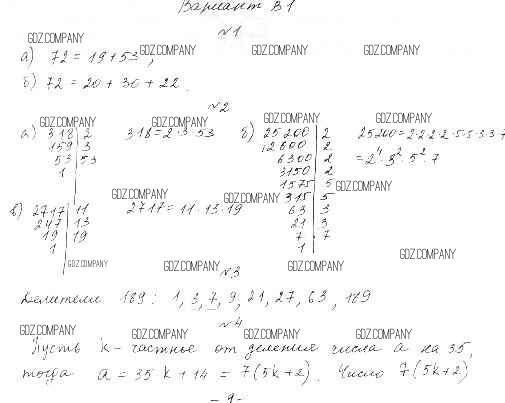 Вариант В1
№1
GDZ.COMPANY GDZ.COMPANY GDZ.COMPANY GDZ.COMPANY
а) 72 = 19 + 53,
б) 72 = 20 + 30 + 22.
№2
GDZ.COMPANY GDZ.COMPANY GDZ.COMPANY GDZ.COMPANY
а) 318 | 2 318 = 2 · 3 · 53 б) 25200 | 2 25200 = 2·2·2·2·5·5·3·3·7
159 | 3 12600 | 2 = 2⁴·3²·5²·7
53 | 53 6300 | 2
1 3150 | 2
GDZ.COMPANY 1575 | 5
GDZ.COMPANY GDZ.COMPANY 315 | 5
в) 2717 | 11 2717 = 11 · 13 · 19 63 | 3
247 | 13 21 | 3
19 | 19 7 | 7
1 1
GDZ.COMPANY
GDZ.COMPANY GDZ.COMPANY GDZ.COMPANY
№3
Делители 189: 1, 3, 7, 9, 21, 27, 63, 189
№4
GDZ.COMPANY GDZ.COMPANY GDZ.COMPANY
Пусть k - частное от деления числа a на 35,
тогда a = 35k + 14 = 7(5k+2). Число 7(5k+2)
- 9 -